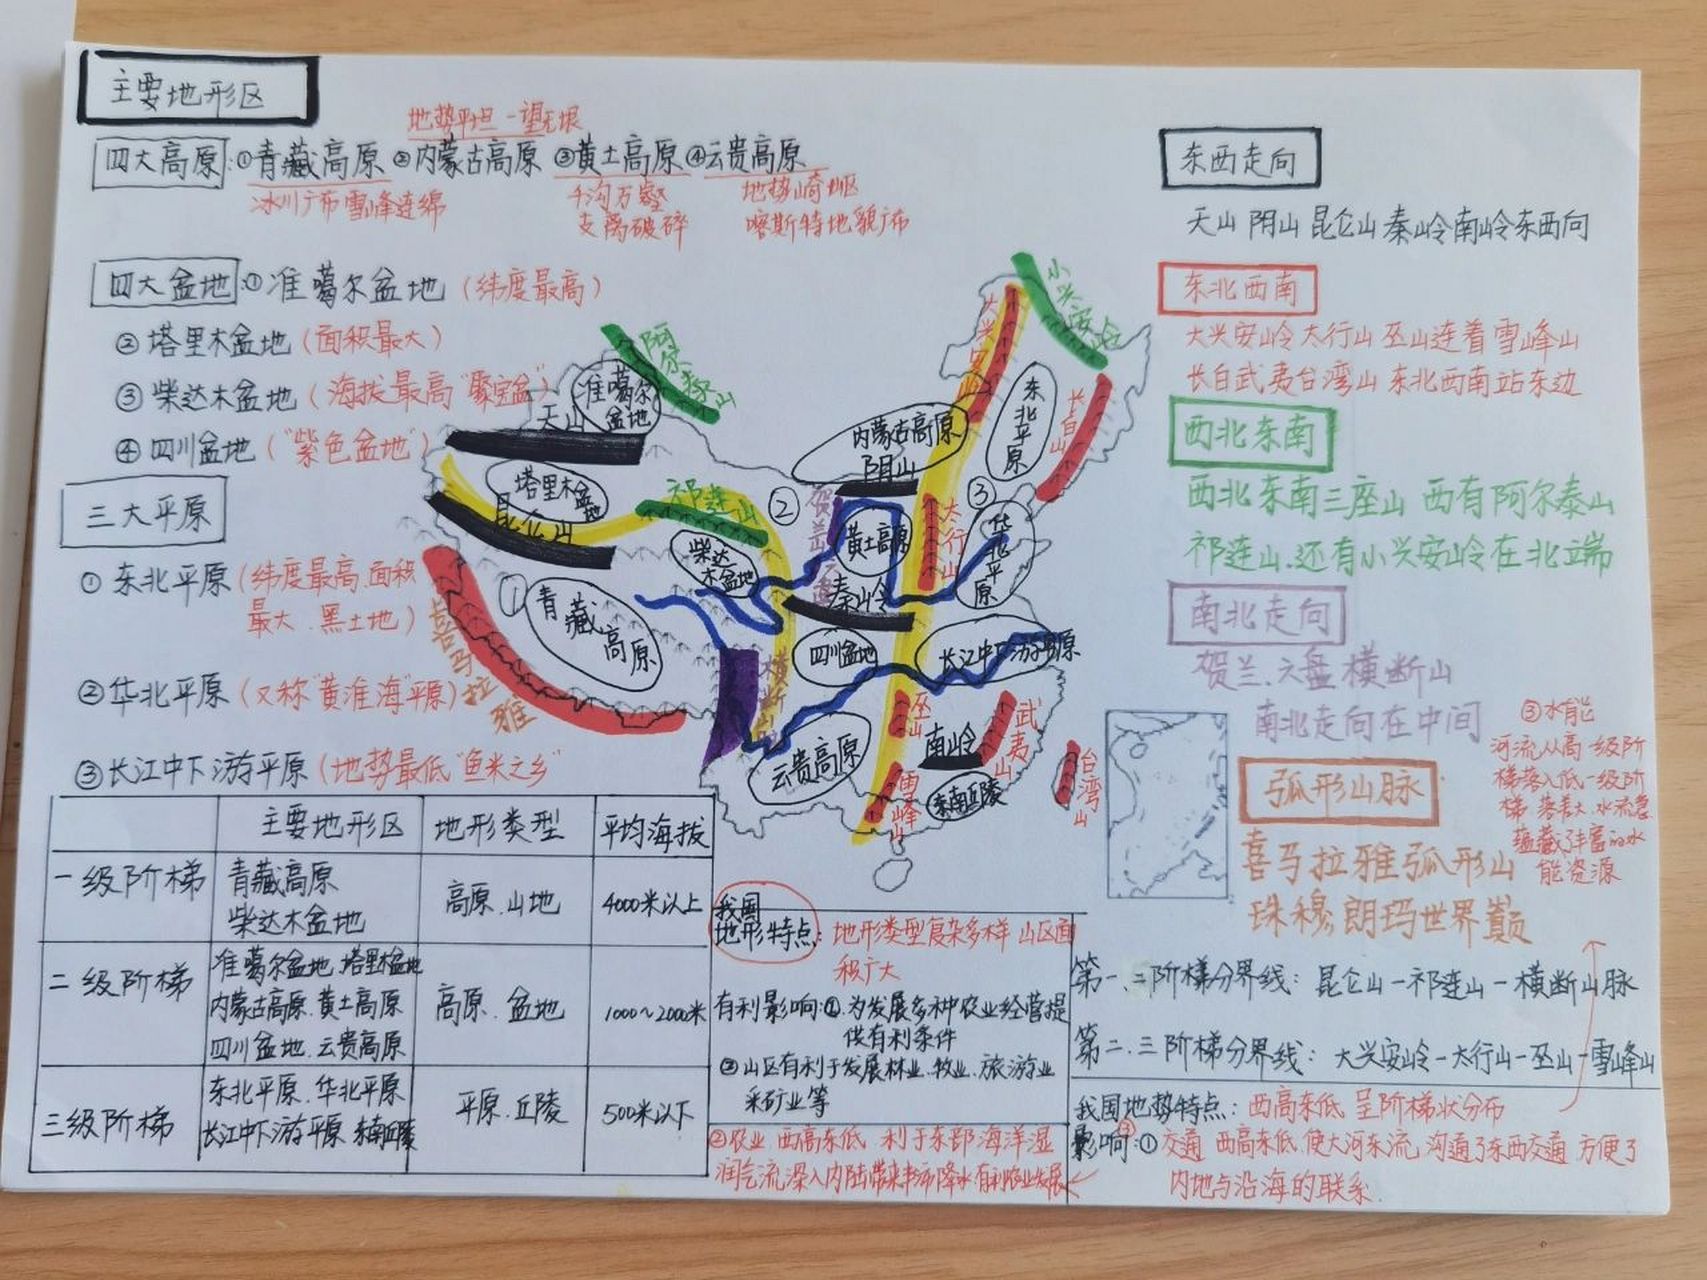 主要地形区
地势平坦 一望无垠
四大高原:①青藏高原 ②内蒙古高原 ③黄土高原④云贵高原
冰川广布雪峰连绵
千沟万壑
支离破碎
地势崎岖
喀斯特地貌广布
四大盆地:①准噶尔盆地(纬度最高)
②塔里木盆地(面积最大)
③柴达木盆地(海拔最高"聚宝盆")
④四川盆地("紫色盆地")
三大平原
①东北平原(纬度最高.面积
最大.黑土地)
②华北平原(又称"黄淮海"平原)
③长江中下游平原(地势最低"鱼米之乡"
主要地形区 地形类型 平均海拔
一级阶梯 青藏高原
柴达木盆地
高原.山地 4000米以上
二级阶梯 准噶尔盆地.塔里木盆地
内蒙古高原.黄土高原
四川盆地.云贵高原
高原.盆地 1000~2000米
三级阶梯 东北平原.华北平原
长江中下游平原 东南丘陵
平原.丘陵 500米以下
小兴安岭
大兴安岭
阿尔泰山
准噶尔
盆地
天山
东北平原
长白山
内蒙古高原
阴山
塔里木盆地
昆仑山
祁连山
②
贺兰山
③
太行山
黄土高原
华北平原
柴达
木盆地
秦岭
①
青藏高原
喜马拉雅
四川盆地
长江中下游平原
横断山
巫山
武夷山
云贵高原
南岭
台湾山
雪峰山
东南丘陵
东西走向
天山 阴山 昆仑山 秦岭南岭东西向
东北西南
大兴安岭太行山 巫山连着雪峰山
长白武夷台湾山 东北西南站东边
西北东南
西北东南三座山 西有阿尔泰山
祁连山.还有小兴安岭在北端
南北走向
贺兰.六盘横断山
南北走向在中间
弧形山脉
喜马拉雅弧形山
珠穆朗玛世界巅
③水能
河流从高一级阶
梯落入低一级阶
梯 落差大.水流急
蕴藏了丰富的水
能资源
我国
地形特点:地形类型复杂多样 山区面
积广大
有利影响:①.为发展多种农业经营提
供有利条件
②山区有利于发展林业.牧业.旅游业
采矿业等
②农业 西高东低 利于东部海洋湿
润气流深入内陆带来丰沛降水有利农业发展
第一.二阶梯分界线:昆仑山-祁连山-横断山脉
第二.三阶梯分界线:大兴安岭-太行山-巫山-雪峰山
我国地势特点:西高东低 呈阶梯状分布
影响:①交通 西高东低.使大河东流,沟通了东西交通 方便了
内地与沿海的联系.